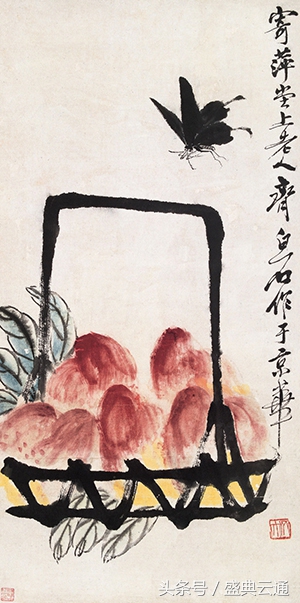 寄萍堂上老人齊白石作于京華
头条号/盛典云通